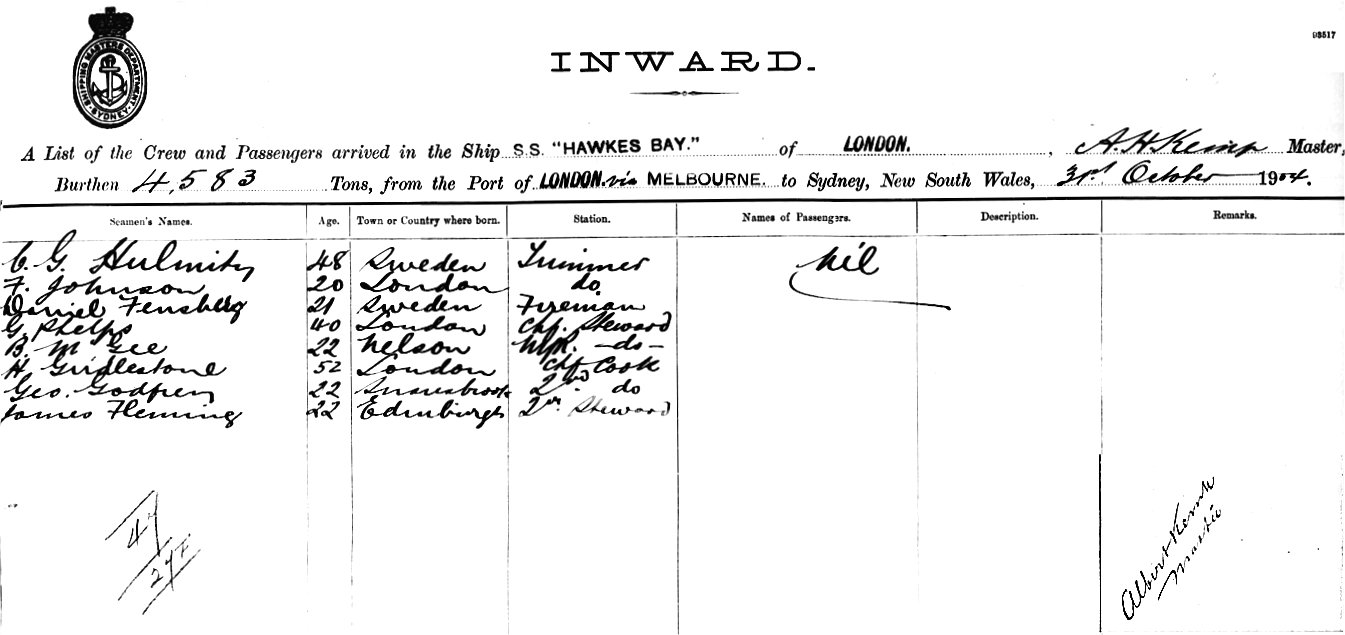 98517
SHIPPING MASTERS DEPARTMENT SYDNEY
INWARD.
A List of the Crew and Passengers arrived in the Ship S.S. "HAWKES BAY." of LONDON. , A. H. Kemp Master,
Burthen 4,583 Tons, from the Port of LONDON. via MELBOURNE. to Sydney, New South Wales, 3rd October 1904.
Seamen's Names. Age. Town or Country where born. Station. Names of Passengers. Description. Remarks.
C. G. 48 Sweden Trimmer Nil
F. Johnson 20 London do
Daniel Fensberg 21 Sweden Fireman
G. Phelps 40 London Chf. Steward
B. McGee 22 Nelson -do-
H. Girdlestone 52 London Chf Cook
Geo. Godfrey 22 Snaresbrook 2nd do
James Fleming 22 Edinburgh 2nd Steward
47
Albert Kemp
Master